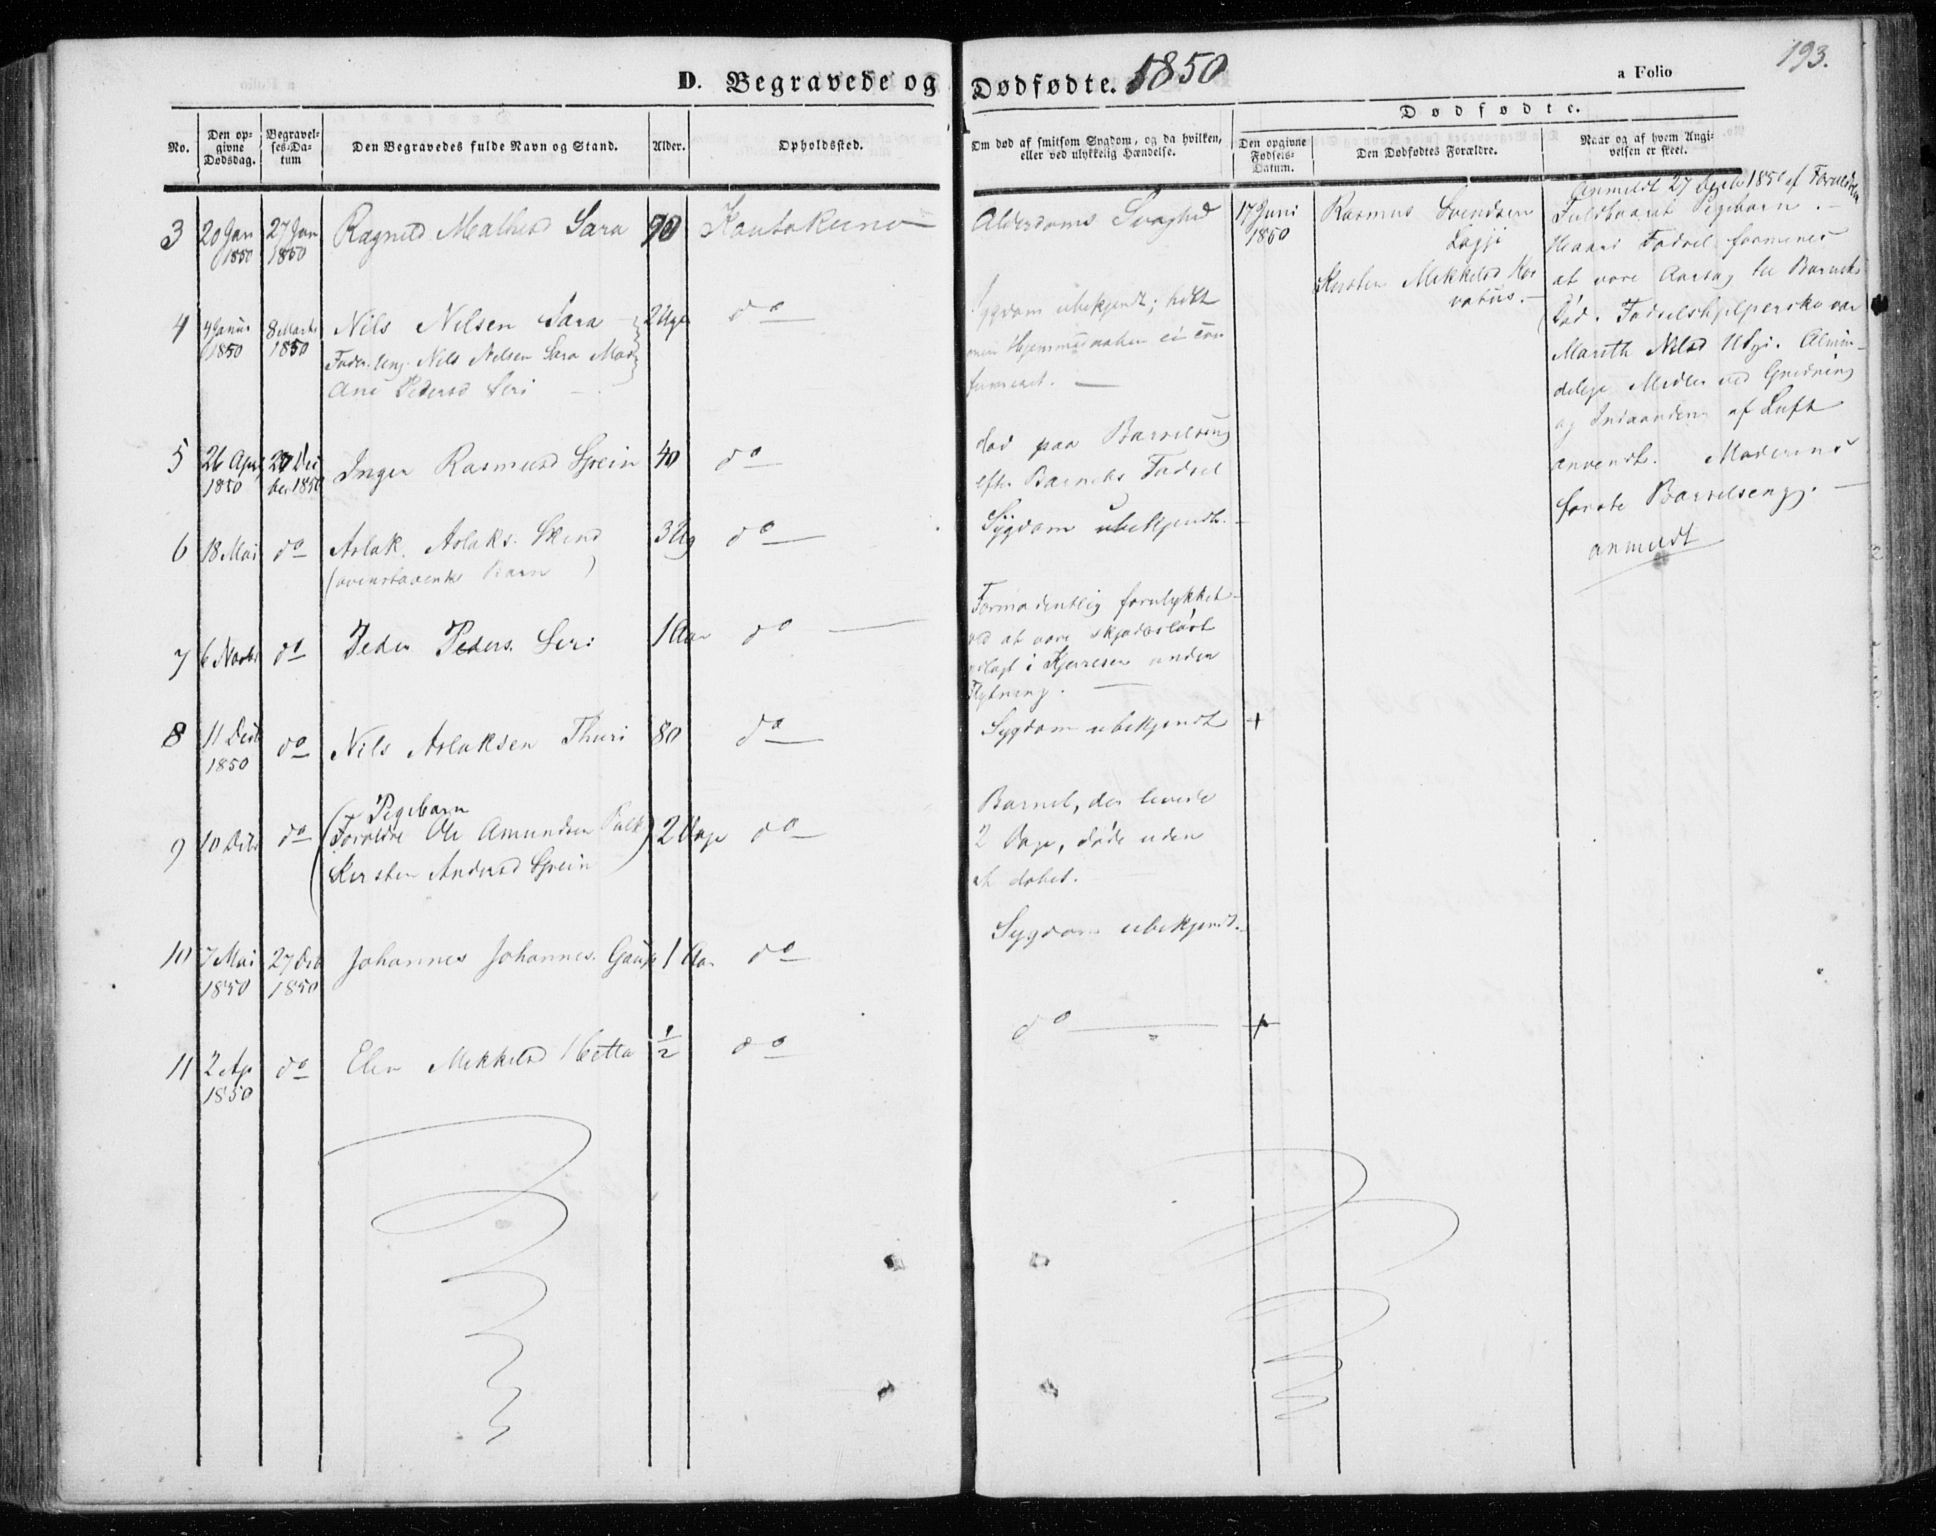 D. Begravede og Dødfødte. 1850
a Folio
193.
No.
Den opgivne Dødsdag.
Begravelses-Datum
Den Begravedes fulde Navn og Stand.
Alder.
Opholdssted.
Om død af smitsom Sygdom, og da hvilken, eller ved ulykkelig Hændelse.
Dødfødte.
Den opgivne Fødsels-Datum.
Den Dødfødtes Forældre.
Naar og af hvem Angivelsen er skeet.
3 20 Jan 1850 27 Jan 1850 Ragnild Mathisd Sara 90 Kautokeino
Alderdoms Svaghed
4 1850 8 Marts 1850 Nils Nilsen Sara 2 Uger do
Nils Nilsen Sara
Ane Pedersd Siri
Sygdom ubekjendt;
5 26 Apr 1850 27 Decber 1850 Inger Rasmusd Spein 40 do
død paa Barselseng
efter Barnets Fødsel
6 18 Mai do Aslak Aslaks. 3 Ug do
(ovenstaaende Barn)
Sygdom ubekjendt.
7 6 Novbr do Peder Peders. Siri 1 Aar do
Formodentlig forulykket
ved at være skjødesløst
nedlagt i Kjerresen under
Flytning.
8 11 Decb 1850 do Nils Aslaksen Thuri 80 do
Sygdom ubekjendt +
9 10 Decb do Pigebarn
(Forældre Ole Amundsen) 2 Dage do
Kirsten Andersd Spein
Barnet, der levede
2 Dage, døde uden
at døbes.
10 7 Mai 1850 27 Decb 1850 Johannes Johannes. Gaup 1 Aar do
Sygdom ubekjendt.
11 2 Ap 1850 do Elen Mikkelsd Hetta 1/2 do
do +
17 Juni 1850
Rasmus Svendsen
Kirsten Mikkelsd
Anmeldt 27 Decbr 1850 af Forældrene
Fuldbaaret Pigebarn. -
Haard Fødsel formenes
at være Aarsag til Barnets
Død. Fødselshjelperske var
Marith Nilsd Utsi. Almin-
delige Midler ved Gnidning
og Indaanden af Luft
anvendt. Moderens
første Barselseng. -
anmeldt